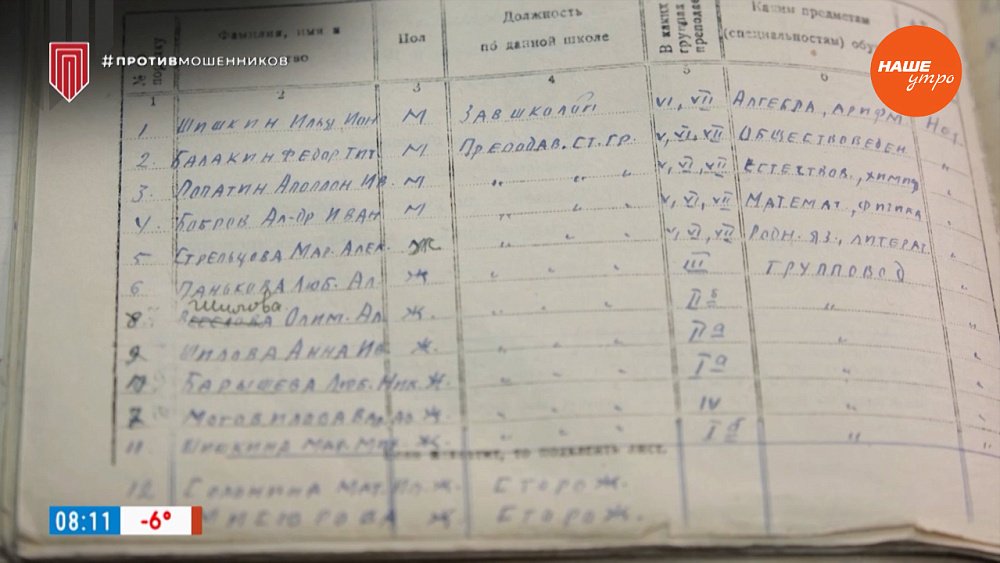 #ПРОТИВМОШЕННИКОВ
НАШЕ
утро
№ по
Фамилия, имя и
Пол
Должность
по данной школе
В каких
группах
преподает
Каким предметам
(специальностям) обу
1 2 3 4 5 6
1 Шишкин Илья Ион М Зав школой VI, VII Алгебра, арифм.
2. Балакин Федор Тит М Преподав. ст. гр. V, VI, VII Обществоведен
3 Лопатин Аполлон Ив. М " " " V, VI, VII Естествов., химия
4. Бобров Ал-др Иван М " " " V, VI, VII Математ., физика
5 Стрельцова Мар. Алек. Ж " " " V, VI, VII Родн. яз., литерат.
6 Панькова Люб. Ал. Ж " " " III Групповод
Шилова
8 Олим. Ал. Ж. " " " II б "
9 Шилова Анна Ив Ж. " " " II а
Барышева Люб. Ник. Ж. " " " I а "
7 Ж. " " " IV "
11 Шишкина Мар. Ж. " " " I б "
то подклеить лист.
12 Мат. Ж. Сторож.
Ж Сторож.
08:11 -6°